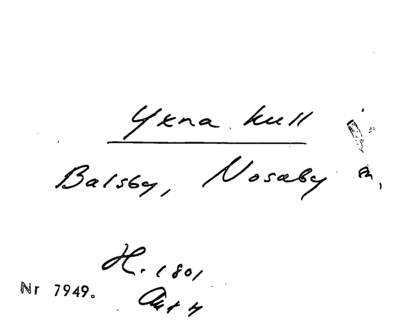 Yxna kull
Balsby, Nosaby
H. 1801
Nr 7949.